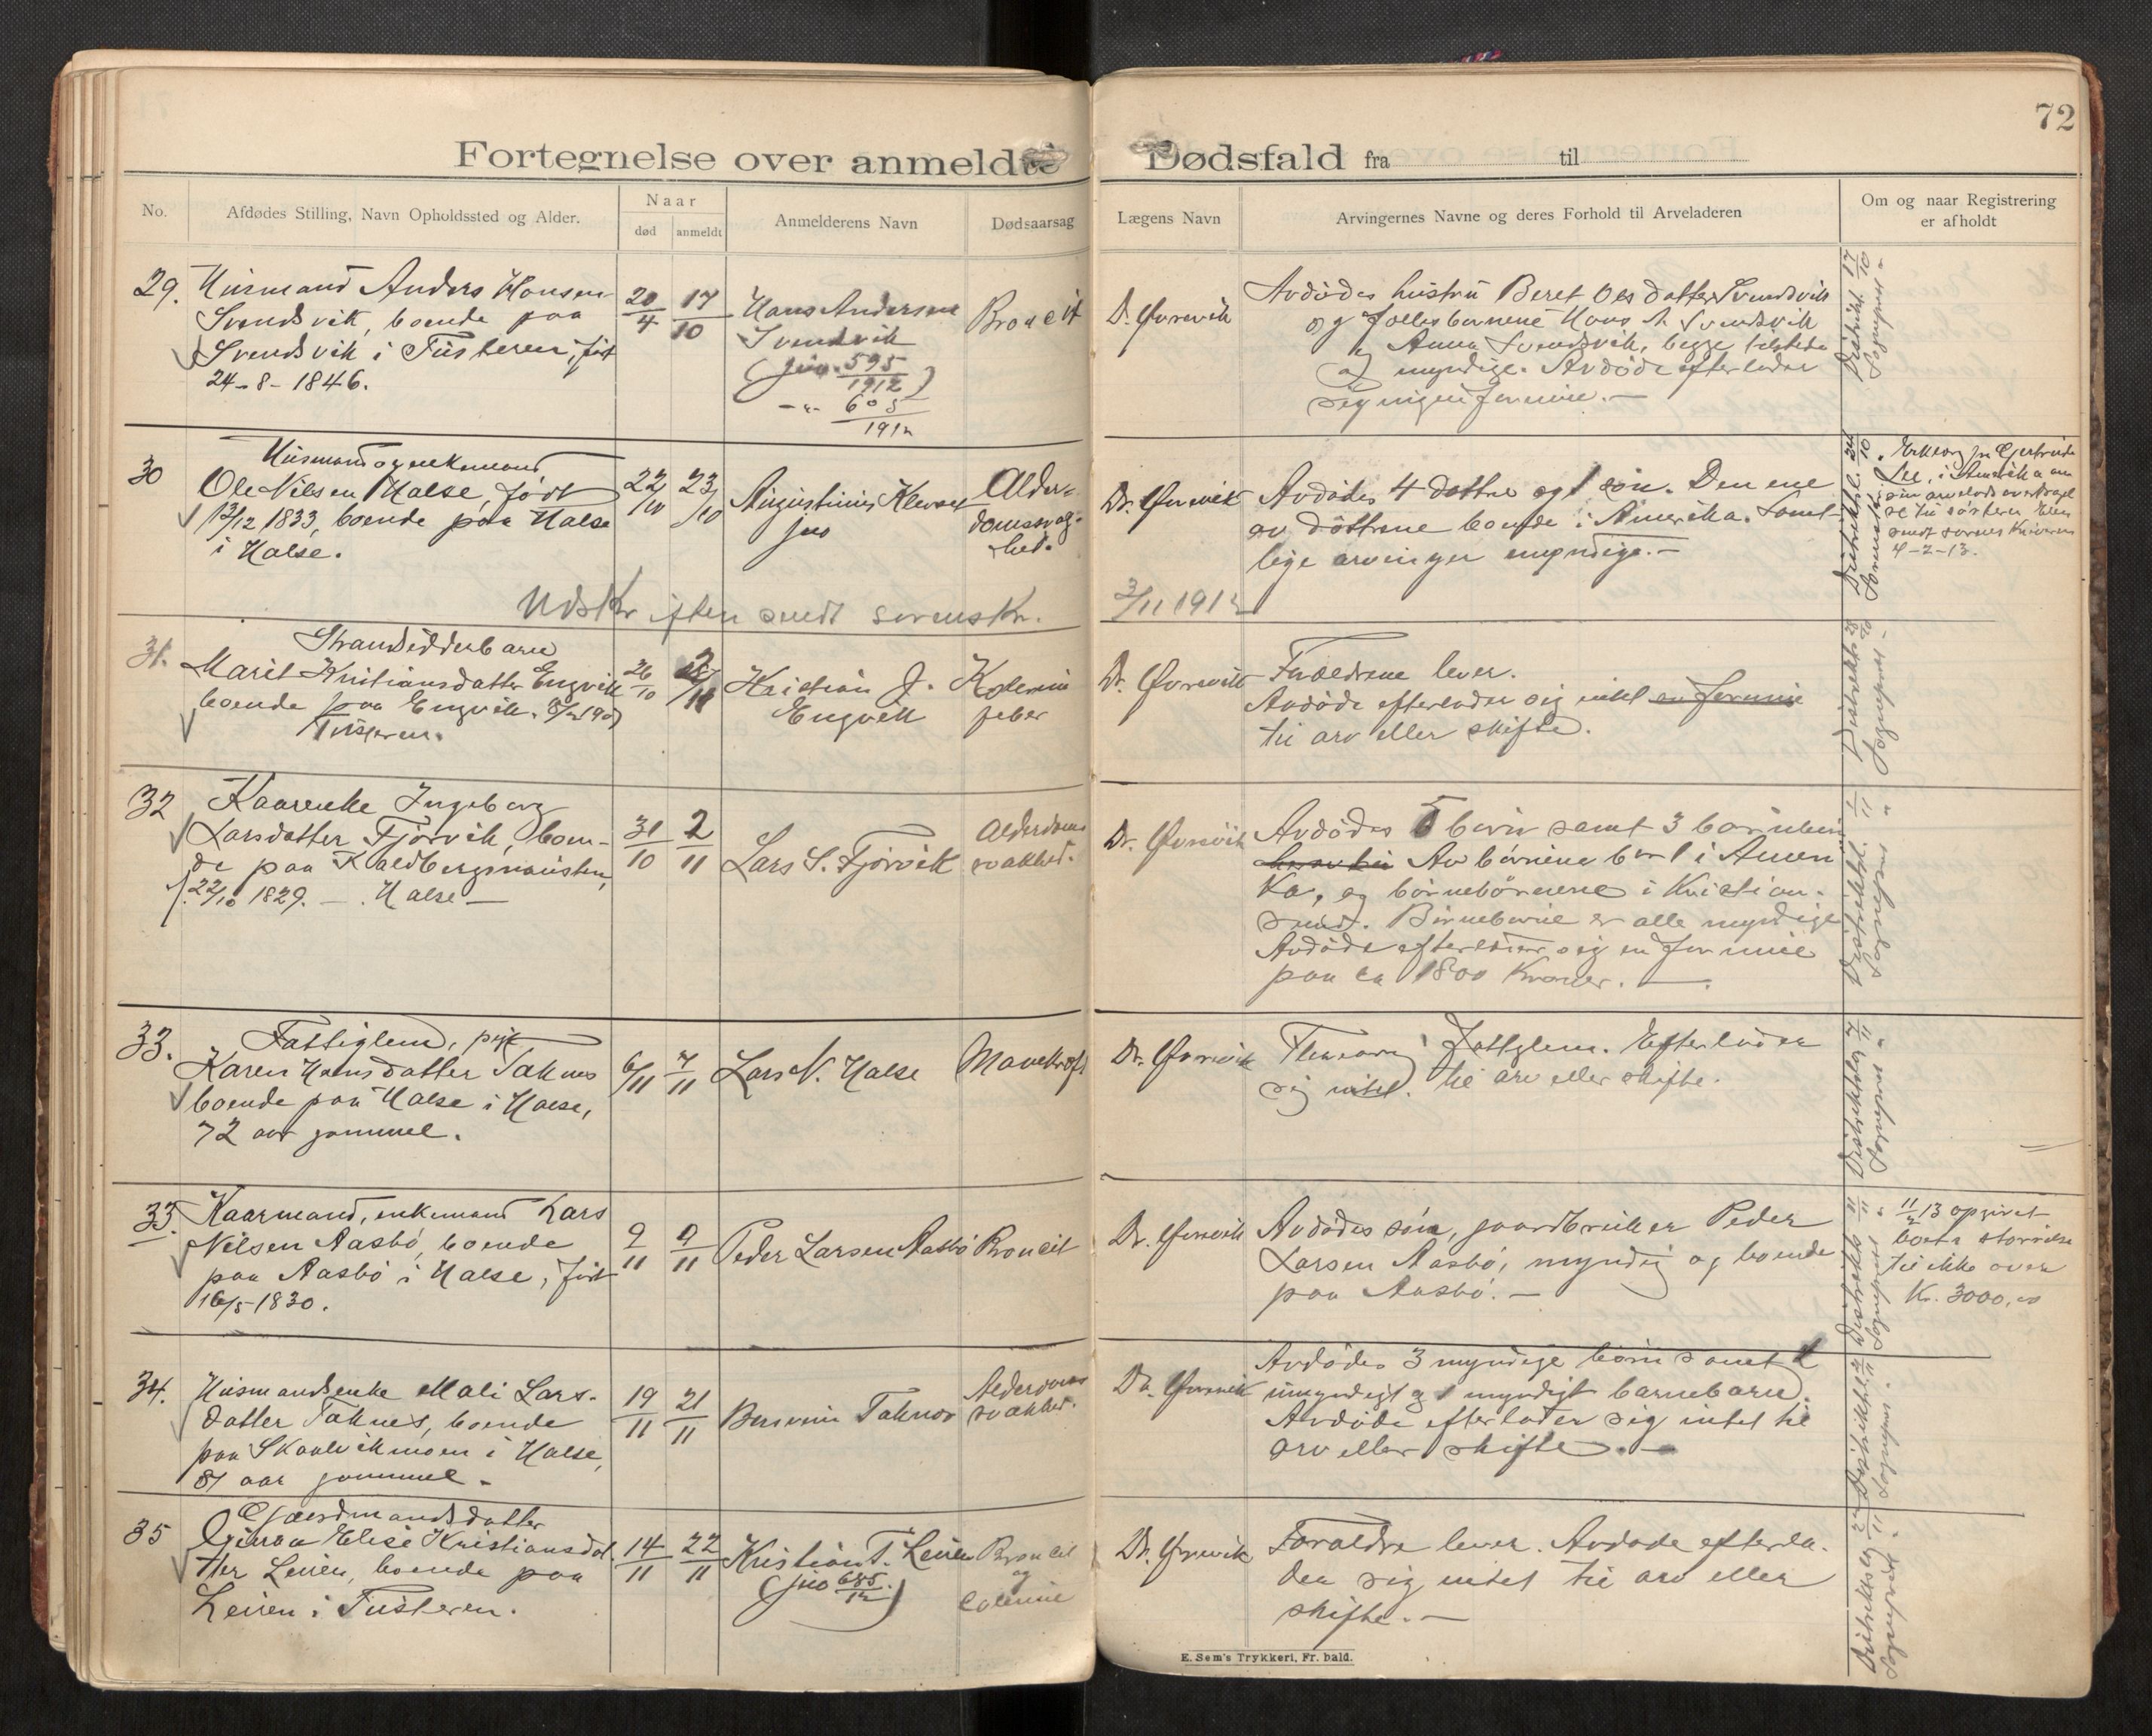 72
Fortegnelse over anmeldte Dødsfald fra til
No.
Afdødes Stilling, Navn Opholdssted og Alder.
Naar
død
anmeldt
Anmelderens Navn
Dødsaarsag
Lægens Navn
Arvingernes Navne og deres Forhold til Arveladeren
Om og naar Registrering
er afholdt
29.
Husmand Anders Hansen
Svendsvik, boende paa
Svendsvik i Tusteren, født
24-8-1846.
20/4
17/10
Hans Andersen
Svendsvik
(jno. 595/1912)
-"- 605/1912
Broncit
Dr. Øvrevik
Avdødes hustru Beret Olsdatter Svendsvik
og fællesbørnene Hans A. Svendsvik
og Anna Svendsvik, begge tilstede
og myndige. Avdøde efterlader
sig ingen formue.-
Distrikt. 17/10
Sogneprest "
30
Husmand og enkemand
Ole Nilsen Halse, født
13/12 1833, boende paa Halse
i Halse.
22/10
23/10
Augustinius Klevset
jno
Alder-
domssvag-
hed.
Dr. Øvrevik
Avdødes 4 døttre og 1 søn. Den ene
av døttrene boende i Amerika. Samt-
lige arvinger myndige.-
4-2-13.
Udskriften sendt sorenskr.
2/11 1912
31.
Strandsidderbarn
Marit Kristiansdatter Engvik
boende paa Engvik,
Tusteren.
26/10
2/11
Kristian J.
Engvik
Dr. Øvrevik
Forældrene lever.
Avdøde efterlader sig intet en formue
til arv eller skifte.
32
Kaarenke Ingeborg
Larsdatter Fjørvik, boen-
de paa Kaldbergsnausten,
f. 22/10 1829. - Halse -
31/10
2/11
Lars S. Fjørvik
Alderdoms
svakhet.
Dr. Øvrevik
Avdødes 5 børn samt 3 barnebørn
Av børnene bor 1 i Ameri
ka, og børnebørnene i Kristian-
sund. Børnebørne er alle myndige
Avdøde efterlader sig en formue
paa ca 1800 Kroner. -
33.
Fattiglem, pike
Karen Hansdatter Taknes
boende paa Halse i Halse,
72 aar gammel.
6/11
7/11
Lars N. Halse
Mavekræft
Dr. Øvrevik
Fattiglem. Efterlader
sig intet til arv eller skifte.
33.
Kaarmand, enkemand Lars
Nilsen Aasbø, boende
paa Aasbø i Halse, født
16/5-1830.
9/11
9/11
Peder Larsen Aasbø
Broncit
Dr. Øvrevik
Avdødes søn, gaardbruker Peder
Larsen Aasbø, myndig og boende
paa Aasbø. -
11/2 13 opgivet
boets størrelse
til ikke over
Kr. 3000,00
34.
Husmandsenke Mali Lars-
datter Taknes, boende
paa Skaalvikmoen i Halse,
81 aar gammel -
19/11
21/11
Taknes
Alderdoms
svakhet.
Dr. Øvrevik
Avdødes 3 myndige børn samt 1
umyndigt og 1 myndigt barnebarn.
Avdøde efterlader sig intet til
arv eller skifte. -
35
Gaardmandsdatter
Elise Kristiansdat-
ter Leiren, boende paa
Leiren i Tusteren.
14/11
22/11
Kristian T. Leiren
(jno 685/12)
Broncit
og
Dr. Øvrevik
Forældre lever. Avdøde efterla-
der sig intet til arv eller
skifte. -
E. Sem's Trykkeri, Fr. hald.